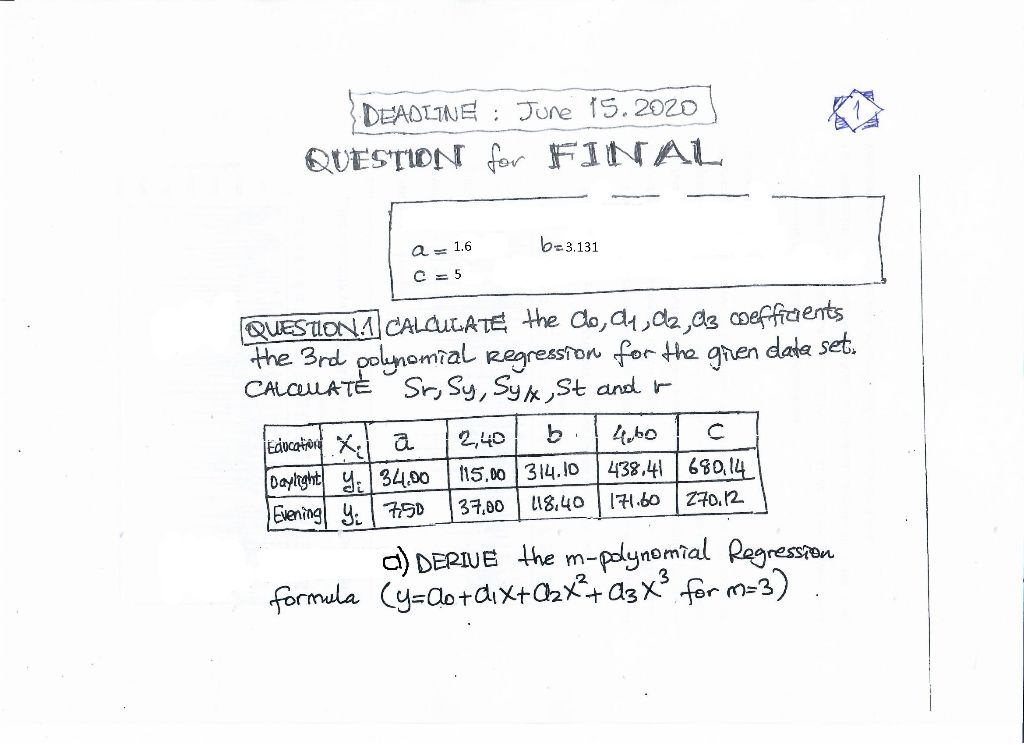 DEADLINE : June 15.2020
1
QUESTION for FINAL
a = 1.6 b=3.131
c = 5
QUESTION.1 CALCULATE the a0, a1, a2, a3 coefficients
the 3rd polynomial Regression for the given data set.
CALCULATE Sr, Sy, Sy/x, St and r
Education Xi a 2,40 b. 4,60 C
Daylight yi 34.00 115.00 314.10 438,41 680,14
Evening yi 7.50 37,00 118,40 171.60 270,12
a) DERIVE the m-polynomial Regression
formula (y=a0+a1x+a2x²+a3x³ for m=3) .